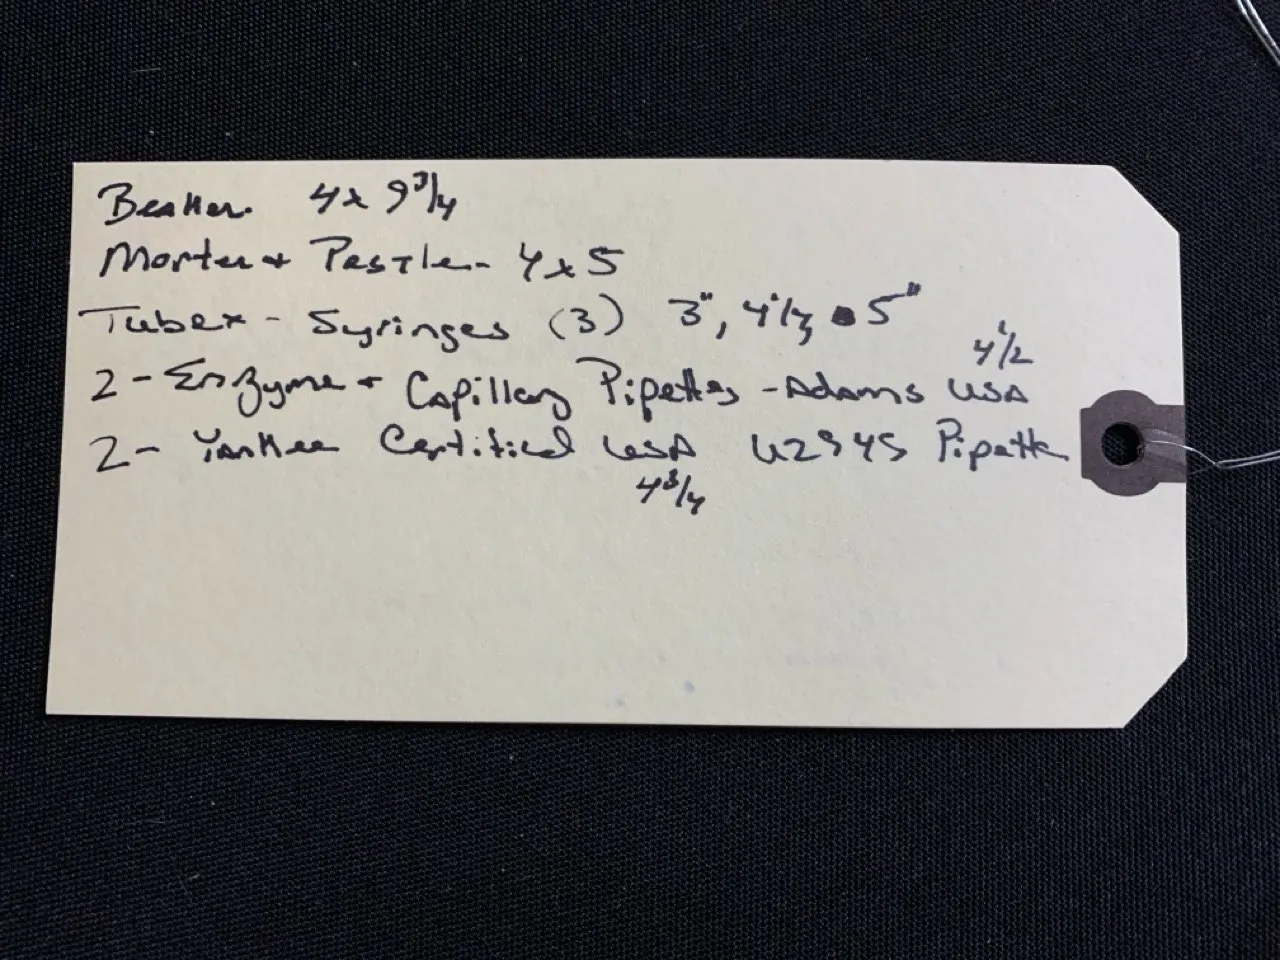 Beaker 4x 9 3/4
Morter + Pestle - 4x5
Tubex - Syringes (3) 3", 4 1/4, 5"
4 1/2
2 - Enzyme + Capillary Pipettes - Adams USA
2 - Yankee Certified USA U2945 Pipette
4 3/4